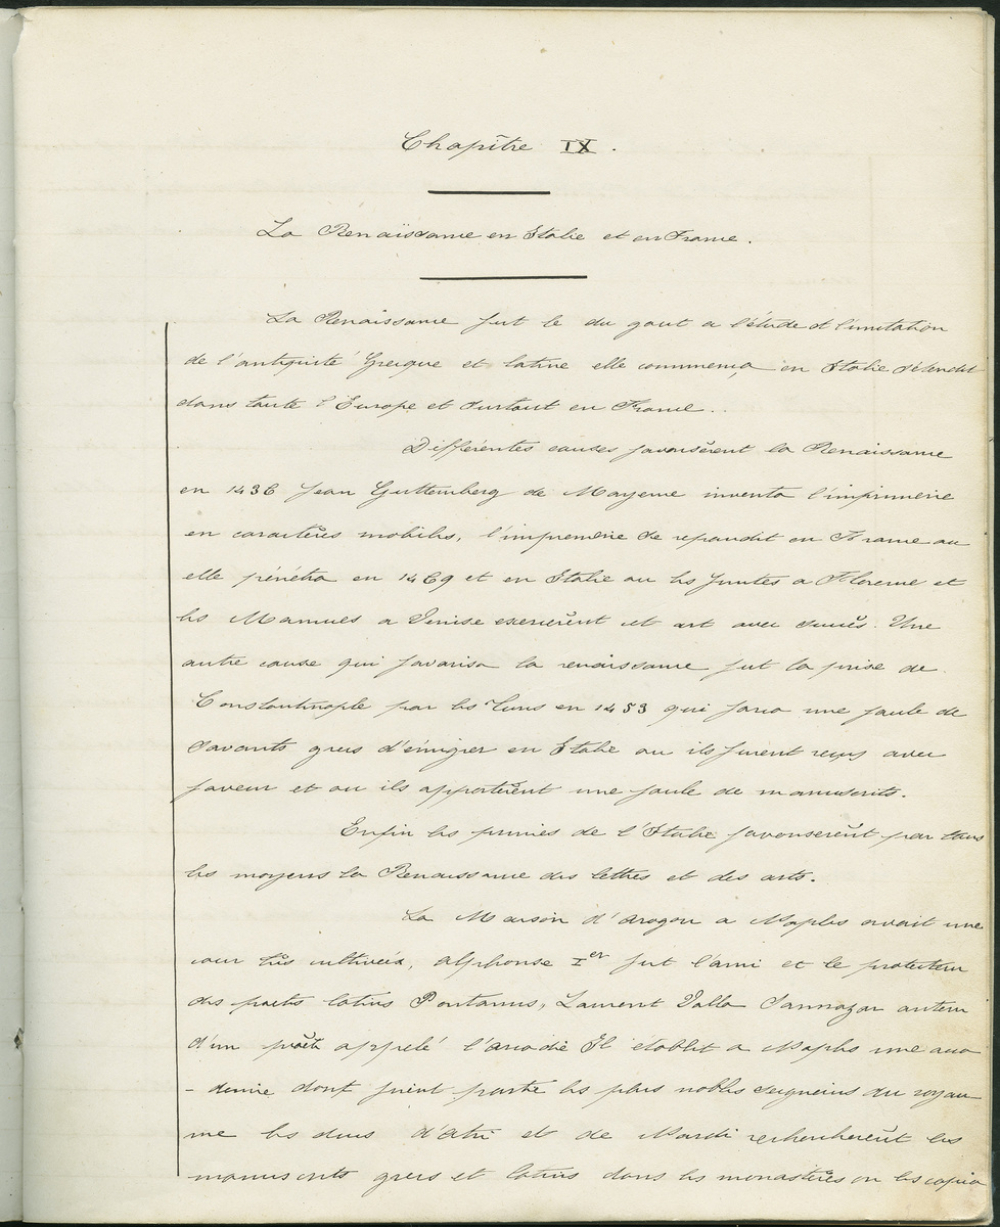 Chapître IX.
La Renaïssance en Italie et en France.
La Renaissance fut le du gout a l'étude et l'imitation
de l'antiquité Grecque et latine elle commença en Italie s'étendit
dans toute l'Europe et surtout en France.
Différentes causes favorisèrent la Renaissance
en 1436 Jean Guttemberg de Mayence inventa l'imprimerie
en caractères mobiles, l'imprimerie se repandit en France ou
elle pénétra en 1469 et en Italie ou les Juntes a Florence et
les Manuces a Venise exercèrent cet art avec succès. Une
autre cause qui favorisa la renaissance fut la prise de
Constantinople par les Turcs en 1453 qui força une foule de
savants grecs d'émigrer en Italie ou ils furent reçus avec
faveur et ou ils apportèrent une foule de manuscrits.
Enfin les princes de l'Italie favoriserent par tous
les moyens la Renaissance des lettres et des arts.
La Maison d'Aragon a Naples avait une
cour très cultivée, Alphonse Ier fut l'ami et le protecteur
des poètes latins Pontanus, Laurent Valla Sannazar auteur
d'un appelé l'Arcadie Il etablit a Naples une aca
-demie dont firent partie les plus nobles seigneurs du royau
me les ducs d'Atri et de Nardi rechercherent les
manuscrits grecs et latins dans les monastères on les copia